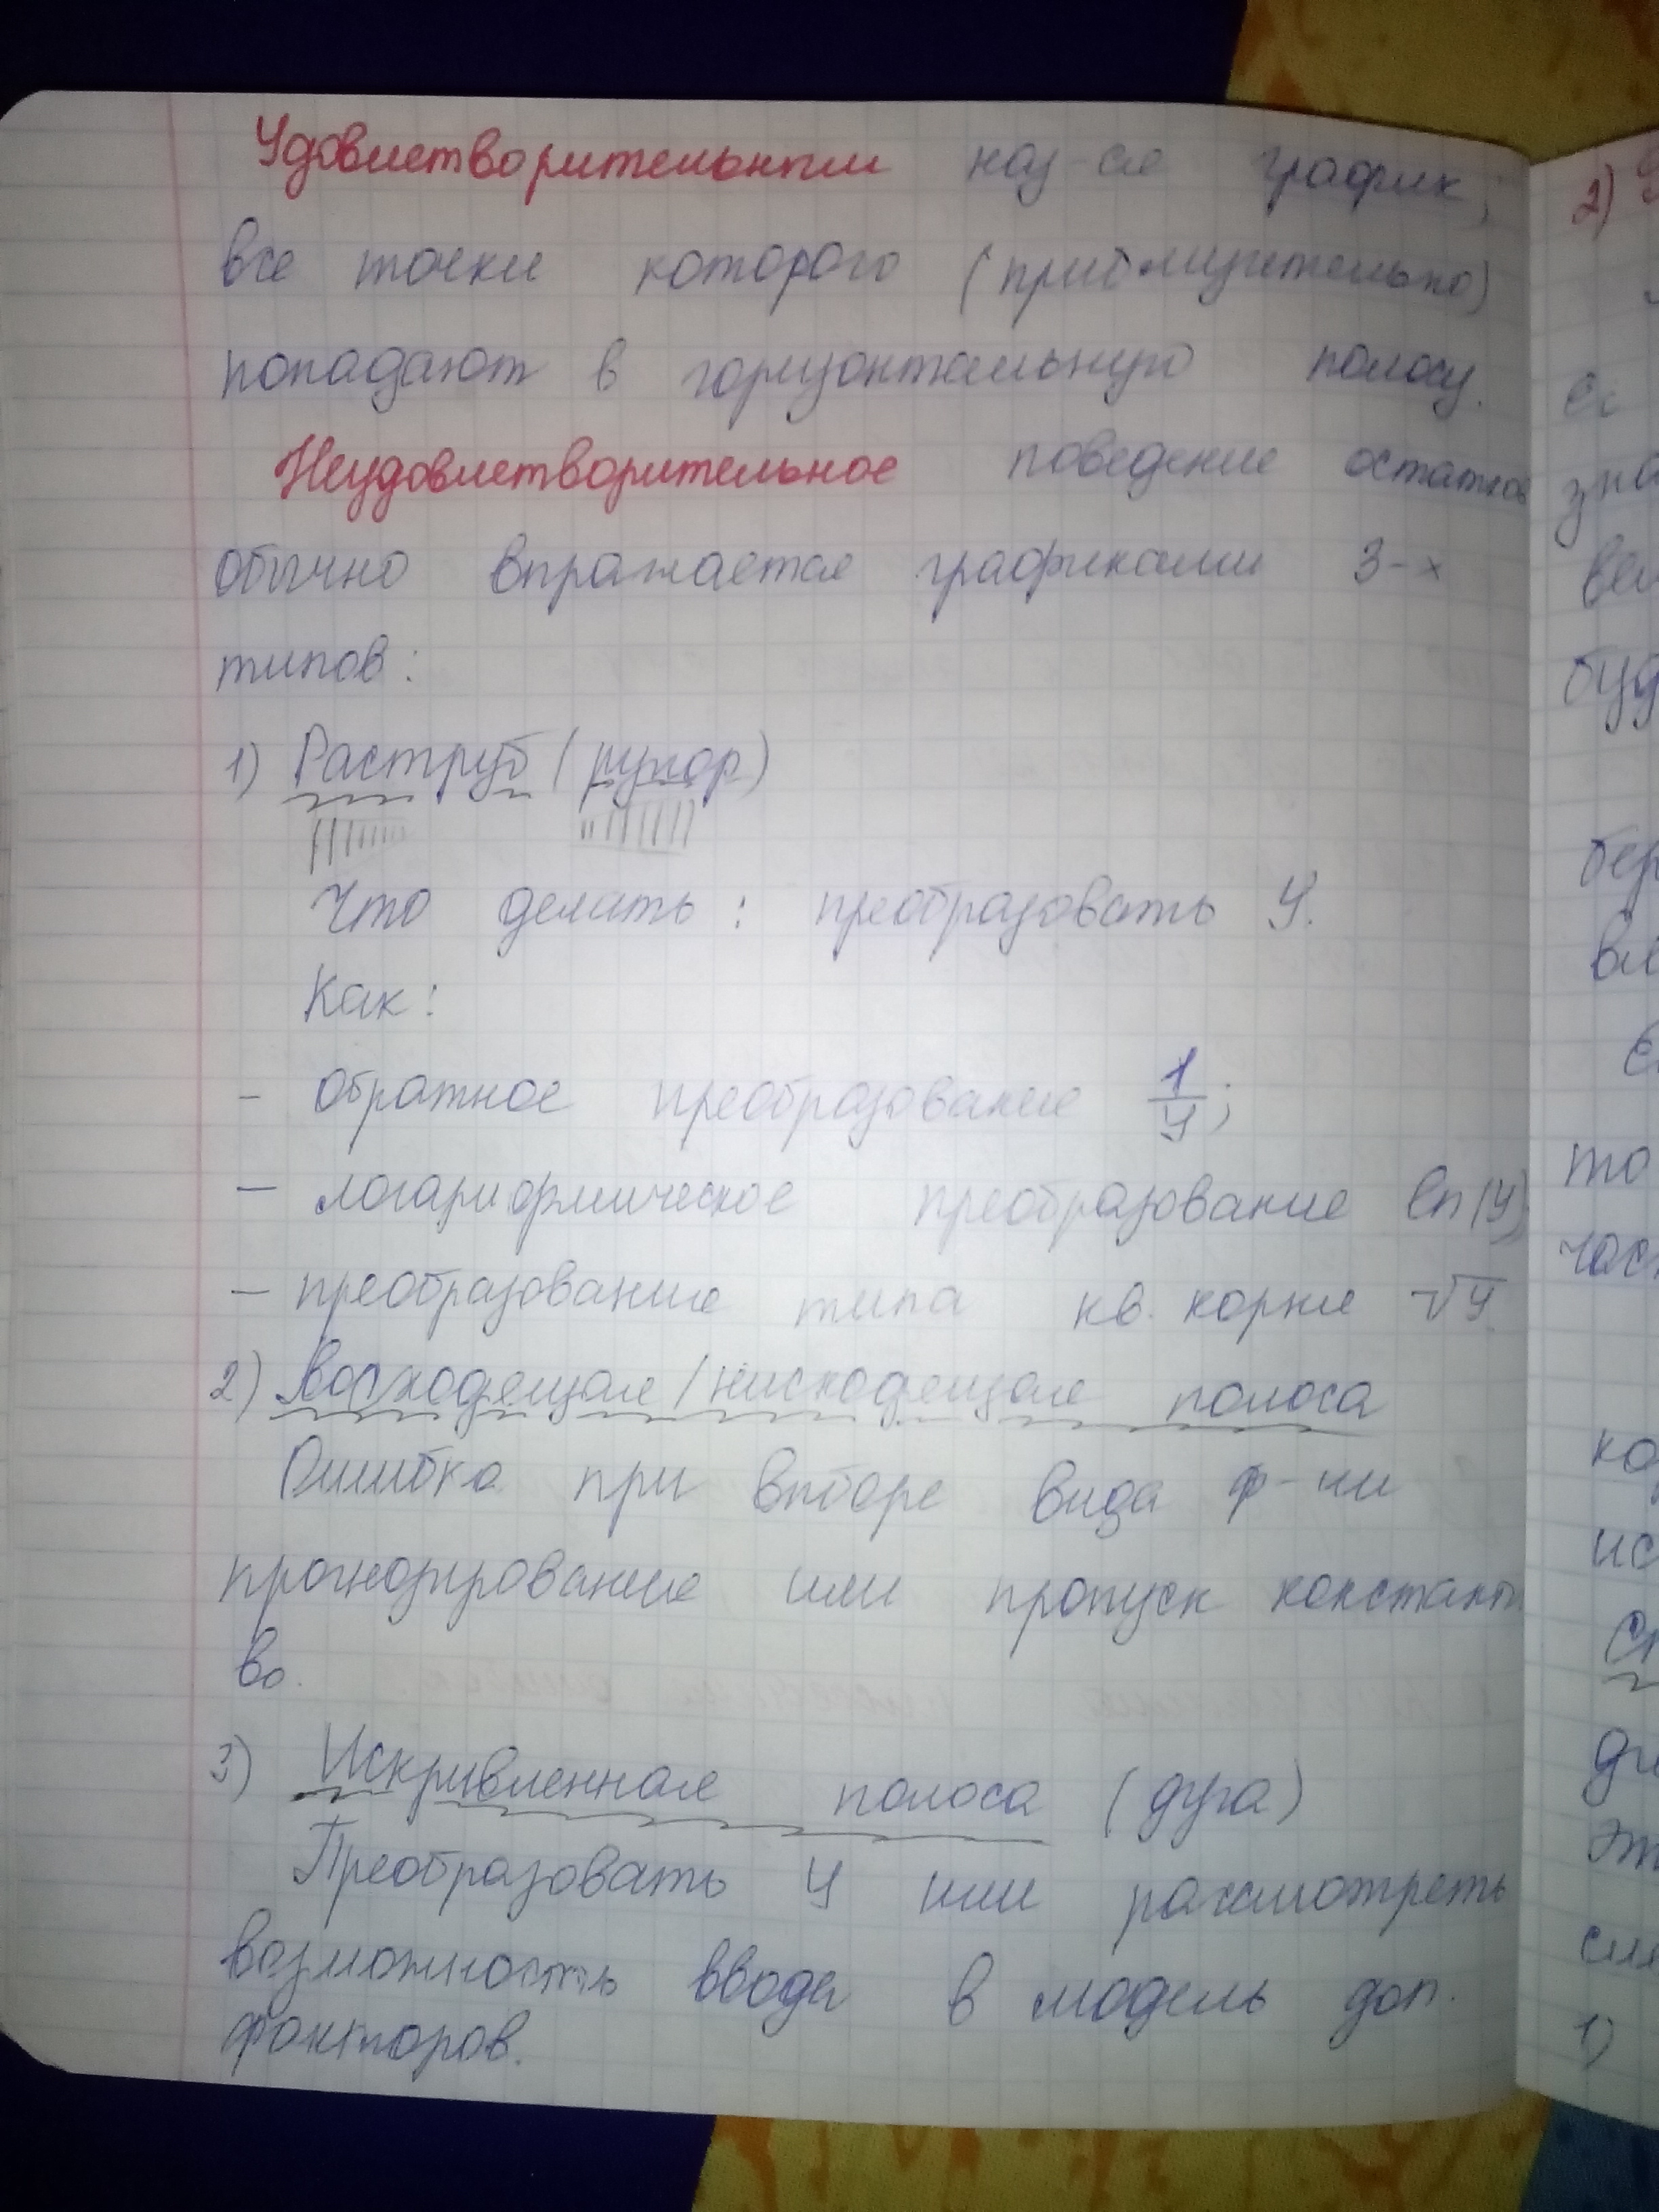 Удовлетворительным наз-ся график,
все точки которого (приблизительно)
попадают в горизонтальную полосу.
Неудовлетворительное поведение остатков
обычно выражается графиками 3-х
типов:
1) Раструб (рупор)
Что делать: преобразовать У.
Как:
- обратное преобразование 1/У;
- логарифмическое преобразование ln(У)
- преобразование типа кв. корня √У
2) Восходящая/нисходящая полоса
Ошибка при выборе вида ф-ии
прогнозирования или пропуск констант
во.
3) Искривленная полоса (дуга)
Преобразовать У или рассмотреть
возможность ввода в модель доп.
факторов.
2)
зна
буд
то
1)